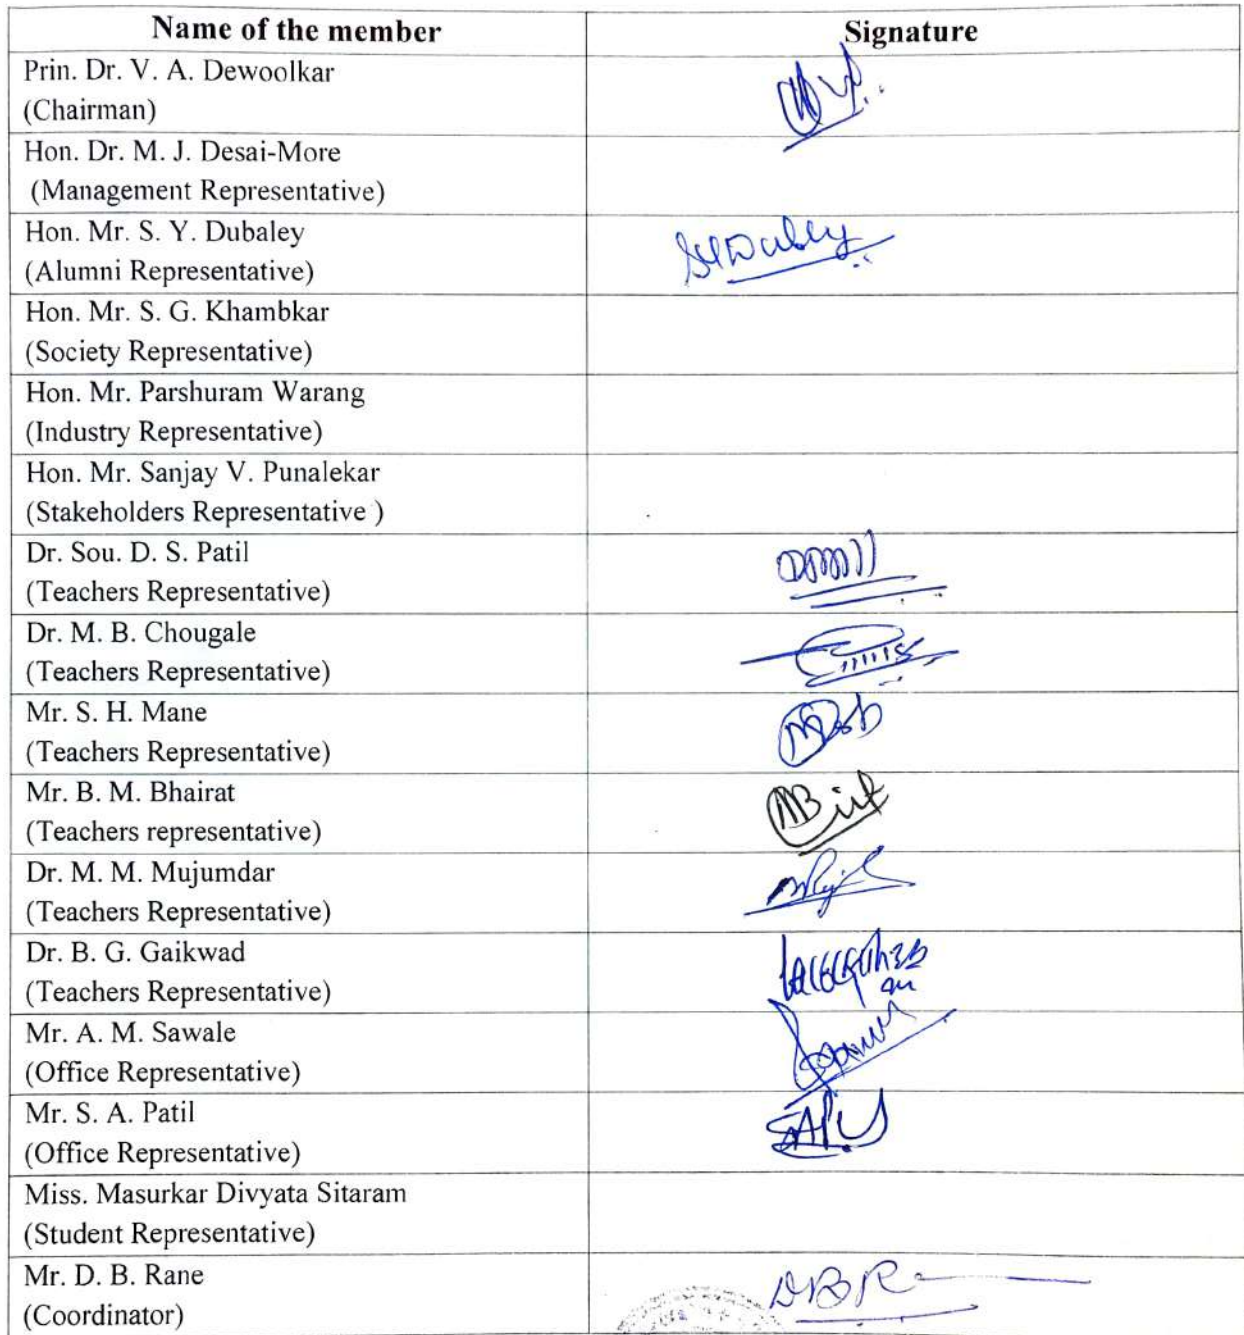 Name of the member Signature
Prin. Dr. V. A. Dewoolkar
(Chairman)
Hon. Dr. M. J. Desai-More
(Management Representative)
Hon. Mr. S. Y. Dubaley
(Alumni Representative)
SYDubley
Hon. Mr. S. G. Khambkar
(Society Representative)
Hon. Mr. Parshuram Warang
(Industry Representative)
Hon. Mr. Sanjay V. Punalekar
(Stakeholders Representative )
Dr. Sou. D. S. Patil
(Teachers Representative)
Dr. M. B. Chougale
(Teachers Representative)
Mr. S. H. Mane
(Teachers Representative)
Mr. B. M. Bhairat
(Teachers representative)
Dr. M. M. Mujumdar
(Teachers Representative)
Dr. B. G. Gaikwad
(Teachers Representative)
Mr. A. M. Sawale
(Office Representative)
Mr. S. A. Patil
(Office Representative)
Miss. Masurkar Divyata Sitaram
(Student Representative)
Mr. D. B. Rane
(Coordinator)